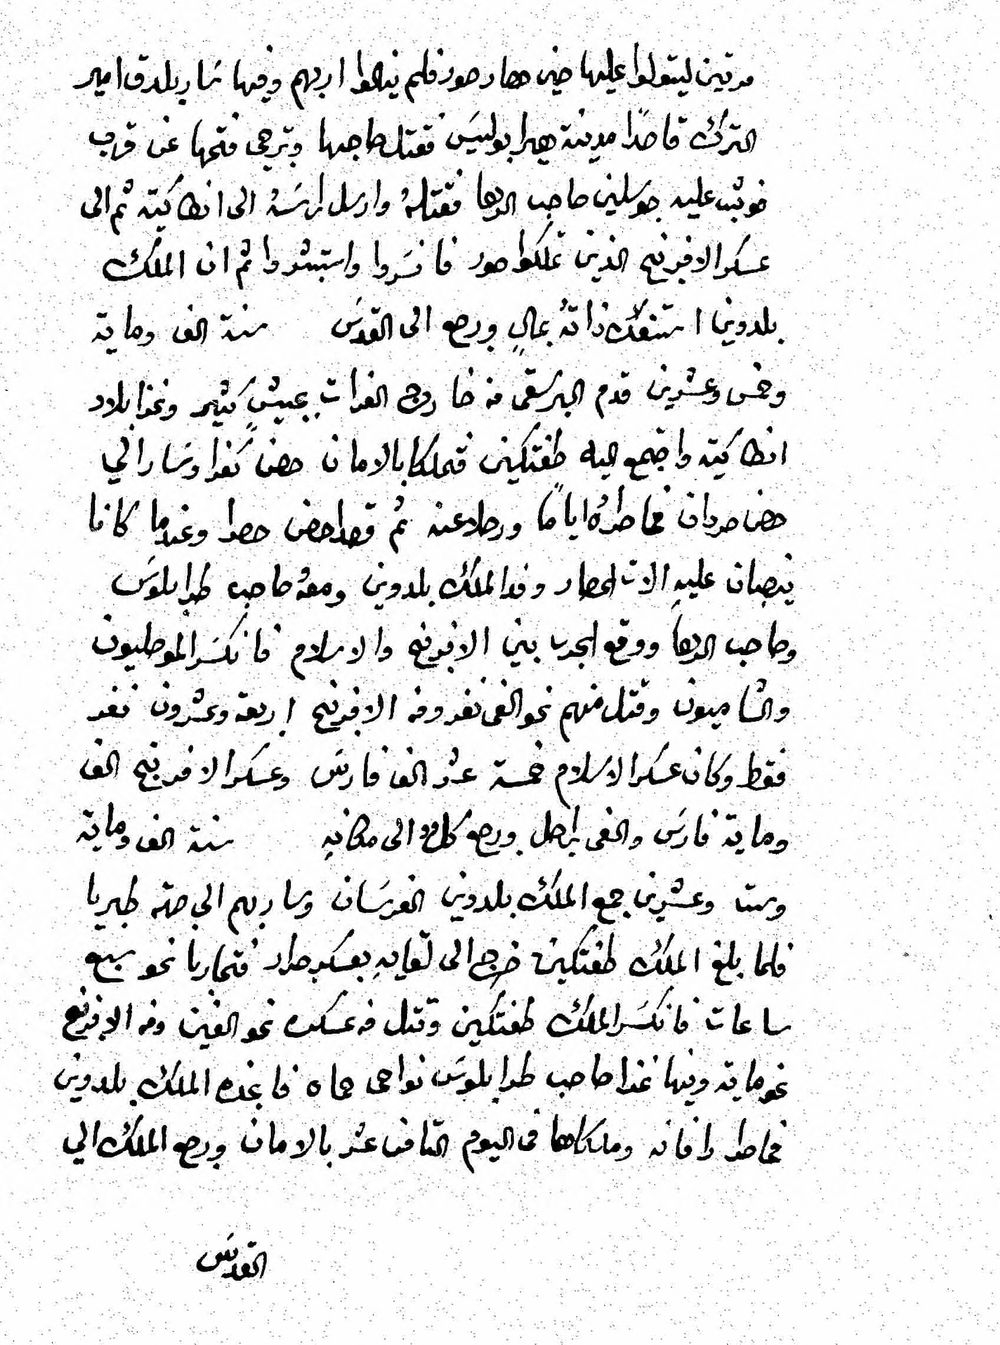 مرتين ليتولوا عليها حين حصار صور فلم ينالوا اربهم وفيها سار بلدق امير
الترك قاصدًا مدينة هيرابوليس فقتل صاحبها وترجى فتحها عن قرب
فوثب عليه جوسلين صاحب الرها فقتلهُ وارسل راسهُ الى انطاكية ثم الى
عسكر الافرنج الذين تملكوا صور فانسروا واستبشروا ثم ان الملك
بلدوين استفك ذاتهُ بمالٍ ورجع الى القدس سنة الف وماية
وخمس وعشرين قدم البرسقي من خاروج الفرات بجيشٍ كثير وغزا بلاد
انطاكية واجتمع اليه طغتكين فتملكا بالامان حصن كفرا وسارا الي
حصن صردان فحاصراهُ اياماً ورحلا عنه ثم قصدا حصن حصرا وعندما كانا
ينصبان عليهِ الات الحصار وفد الملك بلدوين ومعهُ صاحب طرابلوس
وصاحب الرها ووقع الحرب بين الافرنج والاسلام فانكسر الموصليون
والشاميون وقتل منهم نحو الفي نفر ومن الافرنج اربعة وعشرون نفر
فقط وكان عسكر الاسلام خمسة عشر الف فارس وعسكر الافرنج الف
وماية فارس والفي راجل ورجع كل الى مكانهِ سنة الف وماية
وست وعشرين جمع الملك بلدوين الفرسان وسار بهم الي جهة طبريا
فلما بلغ الملك طغتكين خرج الى لقايهِ بعسكر جرار فتحاربا نحو سبع
ساعات فانكسر الملك طغتكين وقتل من عسكره نحو الفين ومن الافرنج
نحو ماية وفيها غزا صاحب طرابلوس نواحي حماه فانجده الملك بلدوين
فحاصرا رافانه وملكاها في اليوم الثامن عشر بالامان ورجع الملك الي
القدس